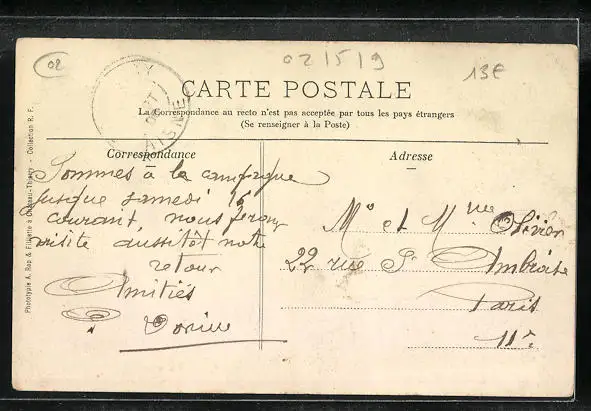 02
02/5/9
13€
AISNE
CARTE POSTALE
La Correspondance au recto n'est pas acceptée par tous les pays étrangers
(Se renseigner à la Poste)
Correspondance
Sommes à la campagne
jusque samedi 16
courant, nous ferons
visite aussitôt notre
retour
Amitiés
Adresse
Mr et Mme Olivier
22 rue St Ambroise
Paris
11e
Phototypie A. Rep & Filliette à Château-Thierry - Collection R. F.